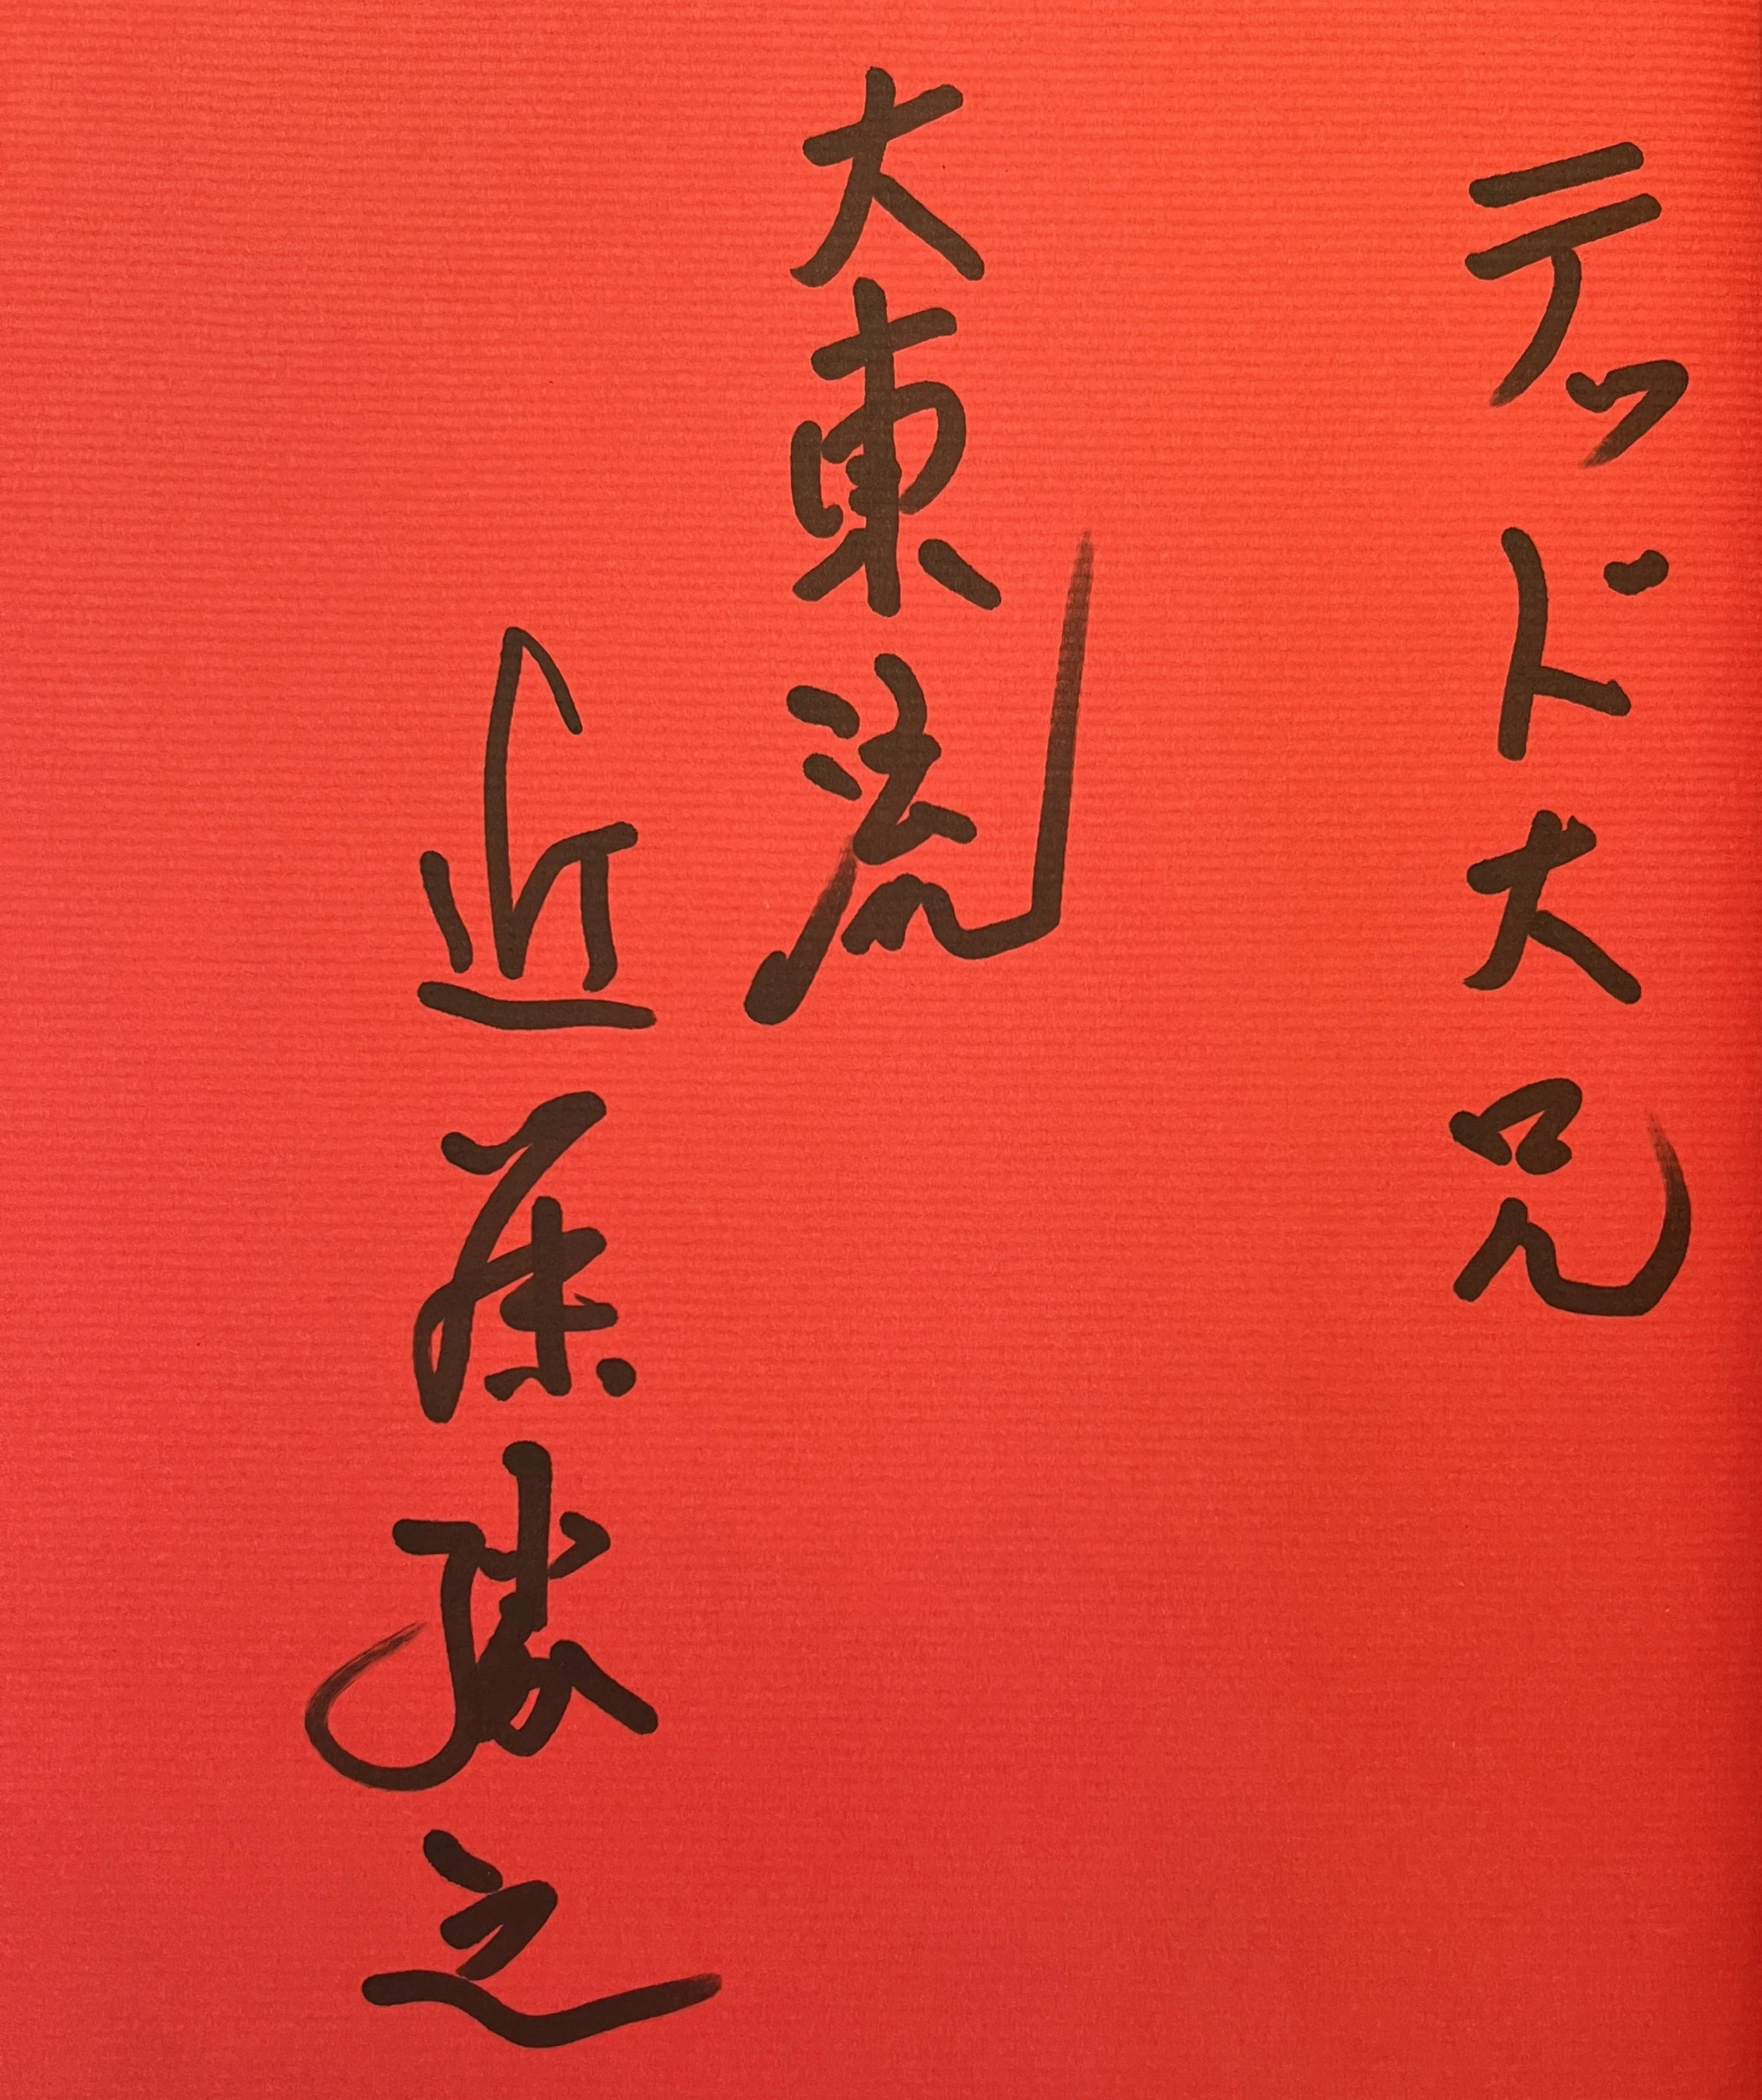 テッド大兄
大東流
近藤勝之